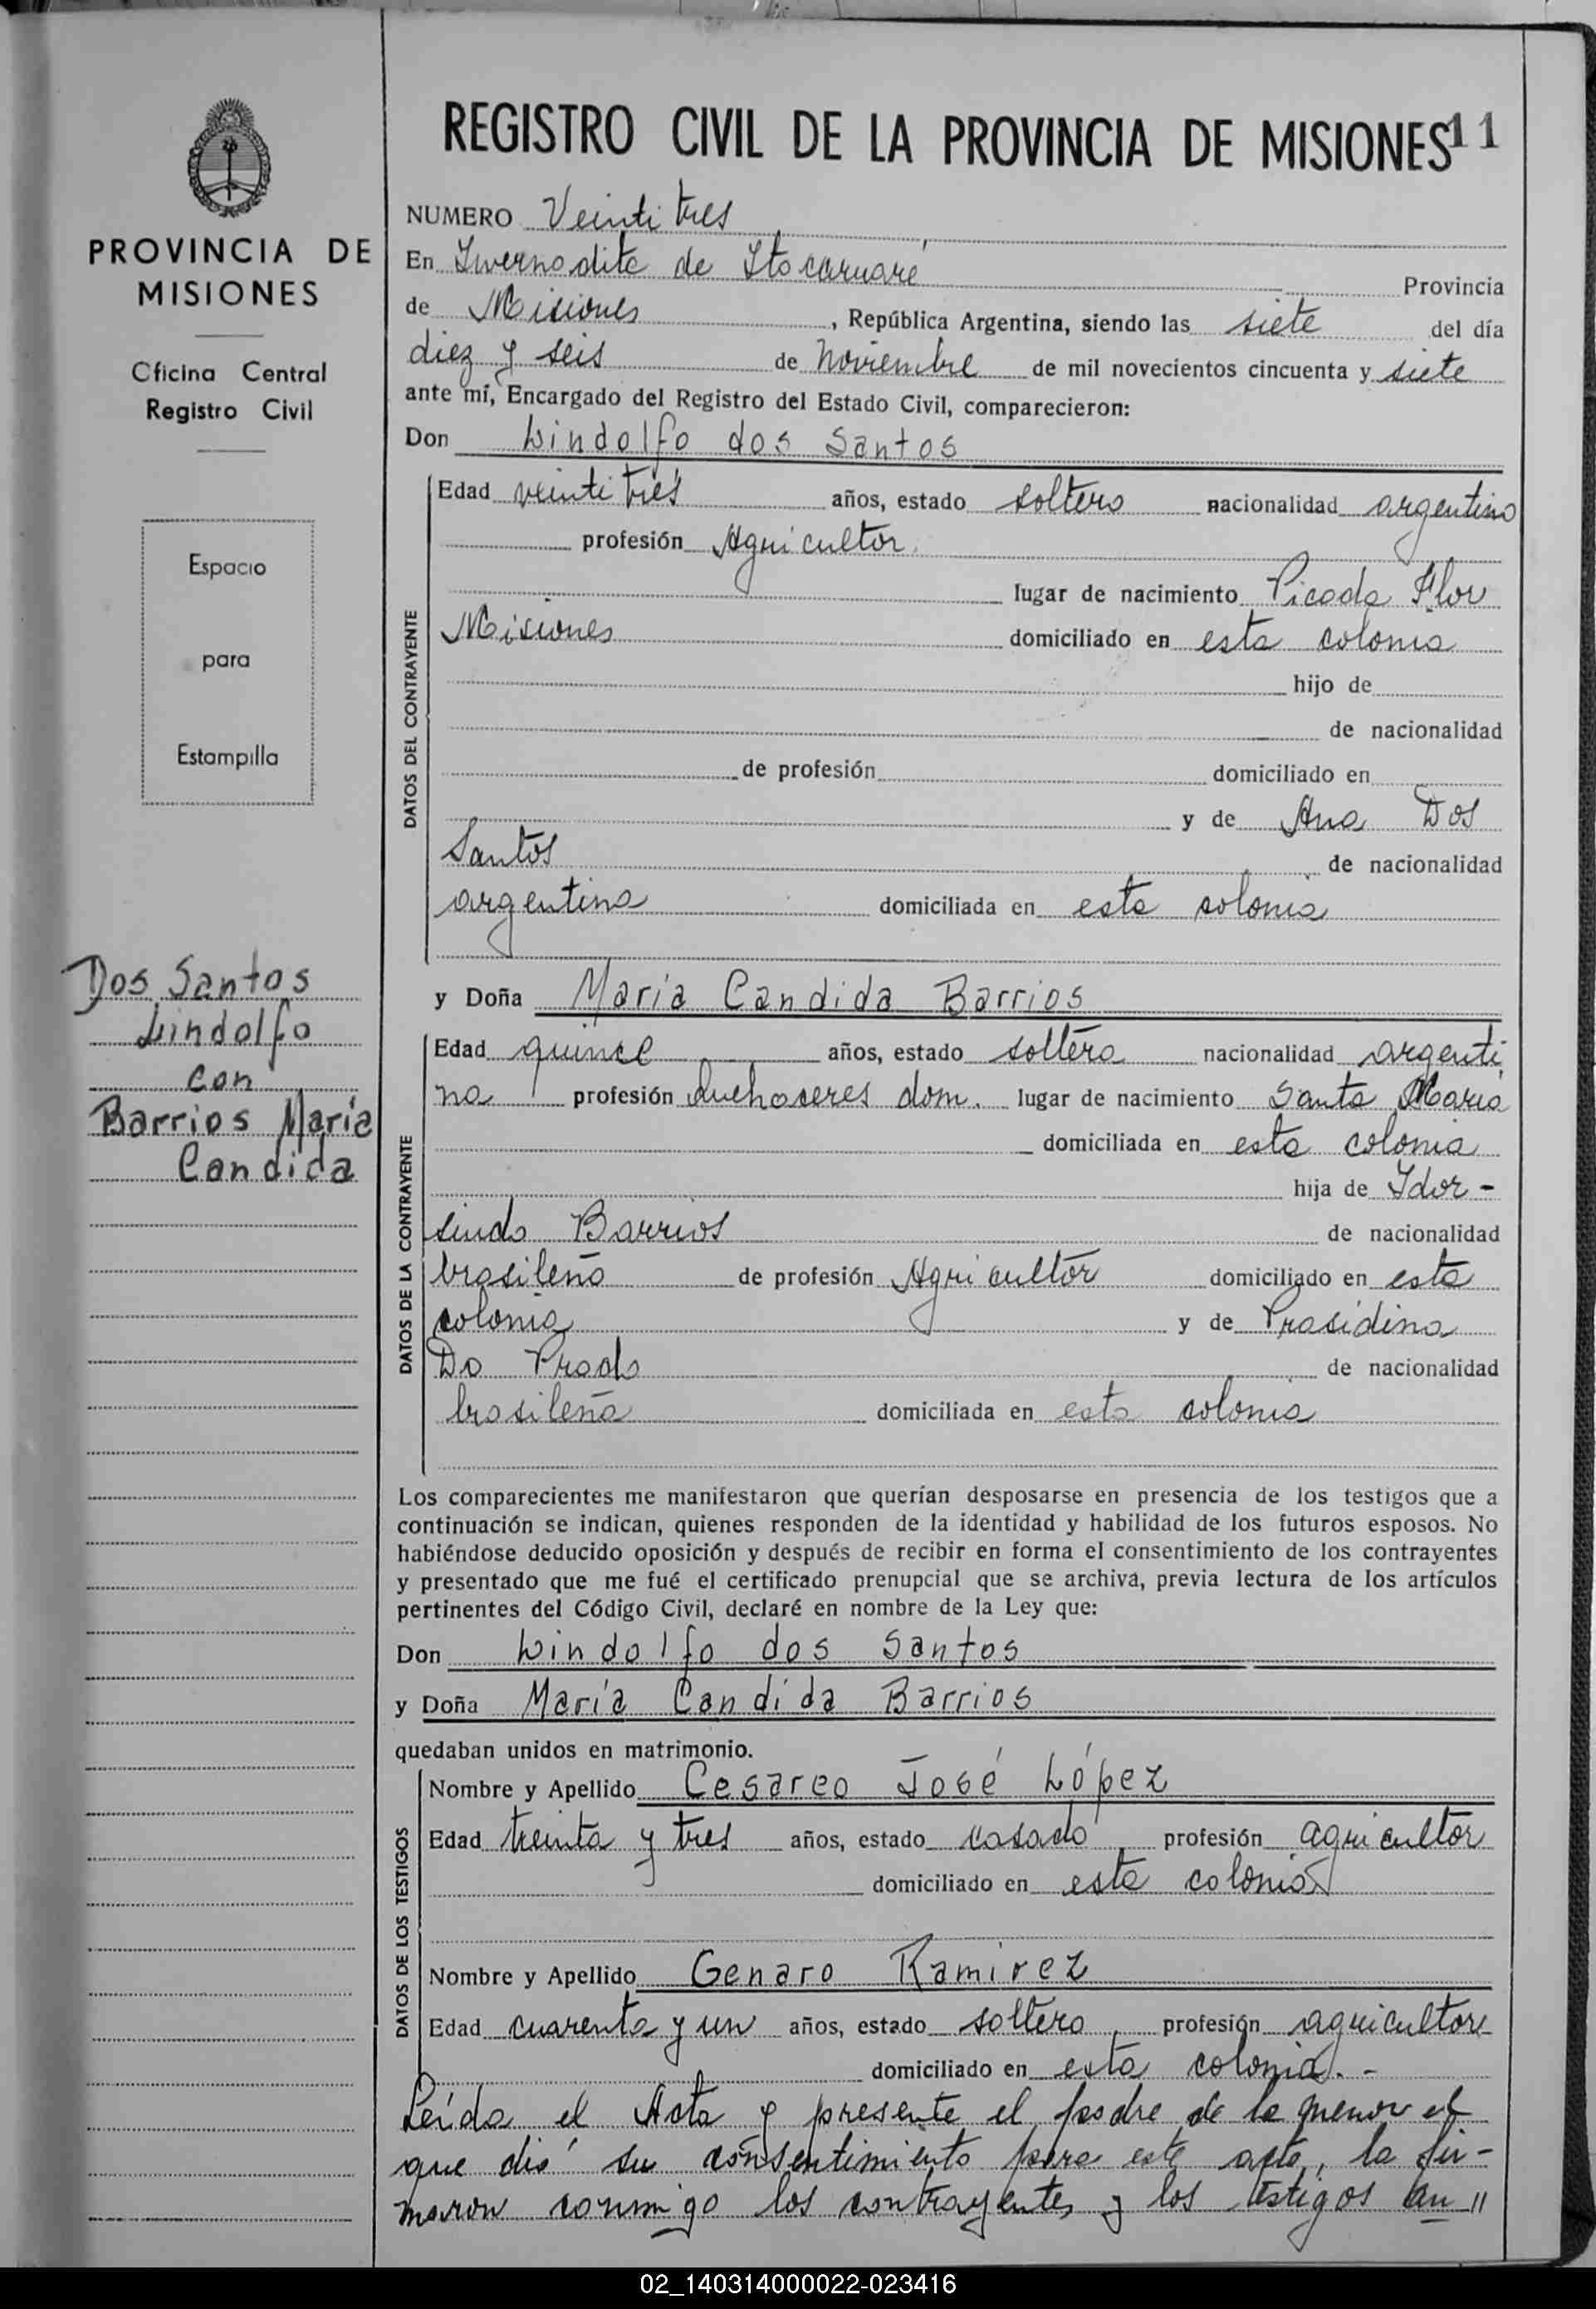 REGISTRO CIVIL DE LA PROVINCIA DE MISIONES 11
PROVINCIA DE
MISIONES
Oficina Central
Registro Civil
Espacio
para
Estampilla
Dos Santos
Lindolfo
con
Barrios María
Candida
NUMERO Veinti tres
En Invernadita de Itacaruaré Provincia
de Misiones, República Argentina, siendo las siete del día
diez y seis de noviembre de mil novecientos cincuenta y siete
ante mí, Encargado del Registro del Estado Civil, comparecieron:
Don Lindolfo dos Santos
DATOS DEL CONTRAYENTE
Edad veinti trés años, estado soltero nacionalidad argentino
profesión Agricultor.
lugar de nacimiento Picada Flor
Misiones domiciliado en esta colonia
hijo de
de nacionalidad
de profesión domiciliado en
y de Ana Dos
Santos de nacionalidad
argentina domiciliada en esta colonia
y Doña María Candida Barrios
DATOS DE LA CONTRAYENTE
Edad quince años, estado soltera nacionalidad argenti
na profesión quehaceres dom. lugar de nacimiento Santa María
domiciliada en esta colonia
hija de Idor-
sindo Barrios de nacionalidad
brasileño de profesión Agricultor domiciliado en esta
colonia y de Prasidina
Do Prado de nacionalidad
brasileña domiciliada en esta colonia
Los comparecientes me manifestaron que querían desposarse en presencia de los testigos que a
continuación se indican, quienes responden de la identidad y habilidad de los futuros esposos. No
habiéndose deducido oposición y después de recibir en forma el consentimiento de los contrayentes
y presentado que me fué el certificado prenupcial que se archiva, previa lectura de los artículos
pertinentes del Código Civil, declaré en nombre de la Ley que:
Don Lindolfo dos Santos
y Doña María Candida Barrios
quedaban unidos en matrimonio.
DATOS DE LOS TESTIGOS
Nombre y Apellido Cesareo José López
Edad treinta y tres años, estado casado profesión agricultor
domiciliado en esta colonia
Nombre y Apellido Genaro Ramirez
Edad cuarenta y un años, estado soltero profesión agricultor
domiciliado en esta colonia.-
Leída el Acta y presente el padre de la menor el
que dió su consentimiento para este acto, la fir-
maron conmigo los contrayentes y los testigos an "
02_140314000022-023416